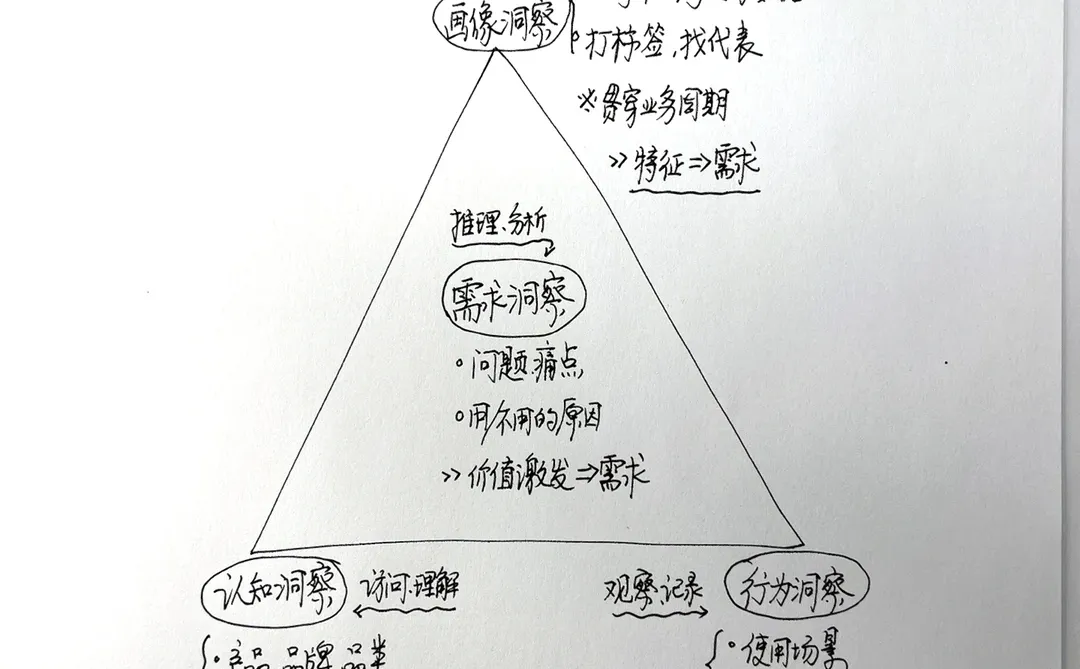 画像洞察
打标签,找代表
※贯穿业务周期
>>特征⇒需求
推理、分析
需求洞察
•问题、痛点
•用/不用的原因
>>价值激发⇒需求
认知洞察
访问、理解
观察、记录
行为洞察
•产品、品牌、品类
•使用场景